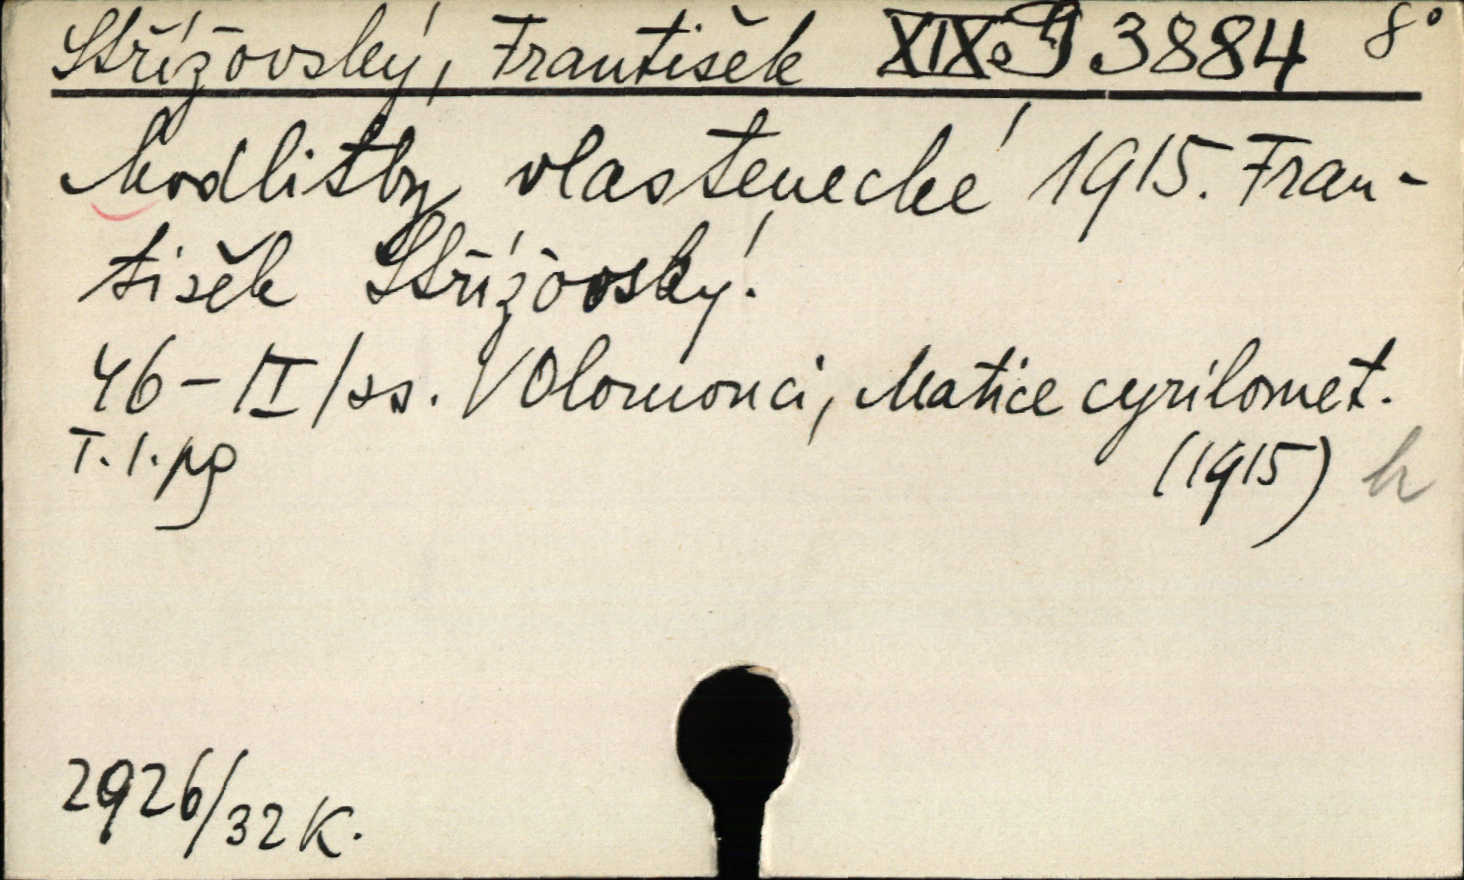 Střížovský, František XIX G 3884 8°
Modlitby vlastenecké 1915. Fran-
tišek Střížovský.
46-II/ss. V Olomouci, Matice cyrilomet.
T. I. pg (1915) h
2926/32 K.